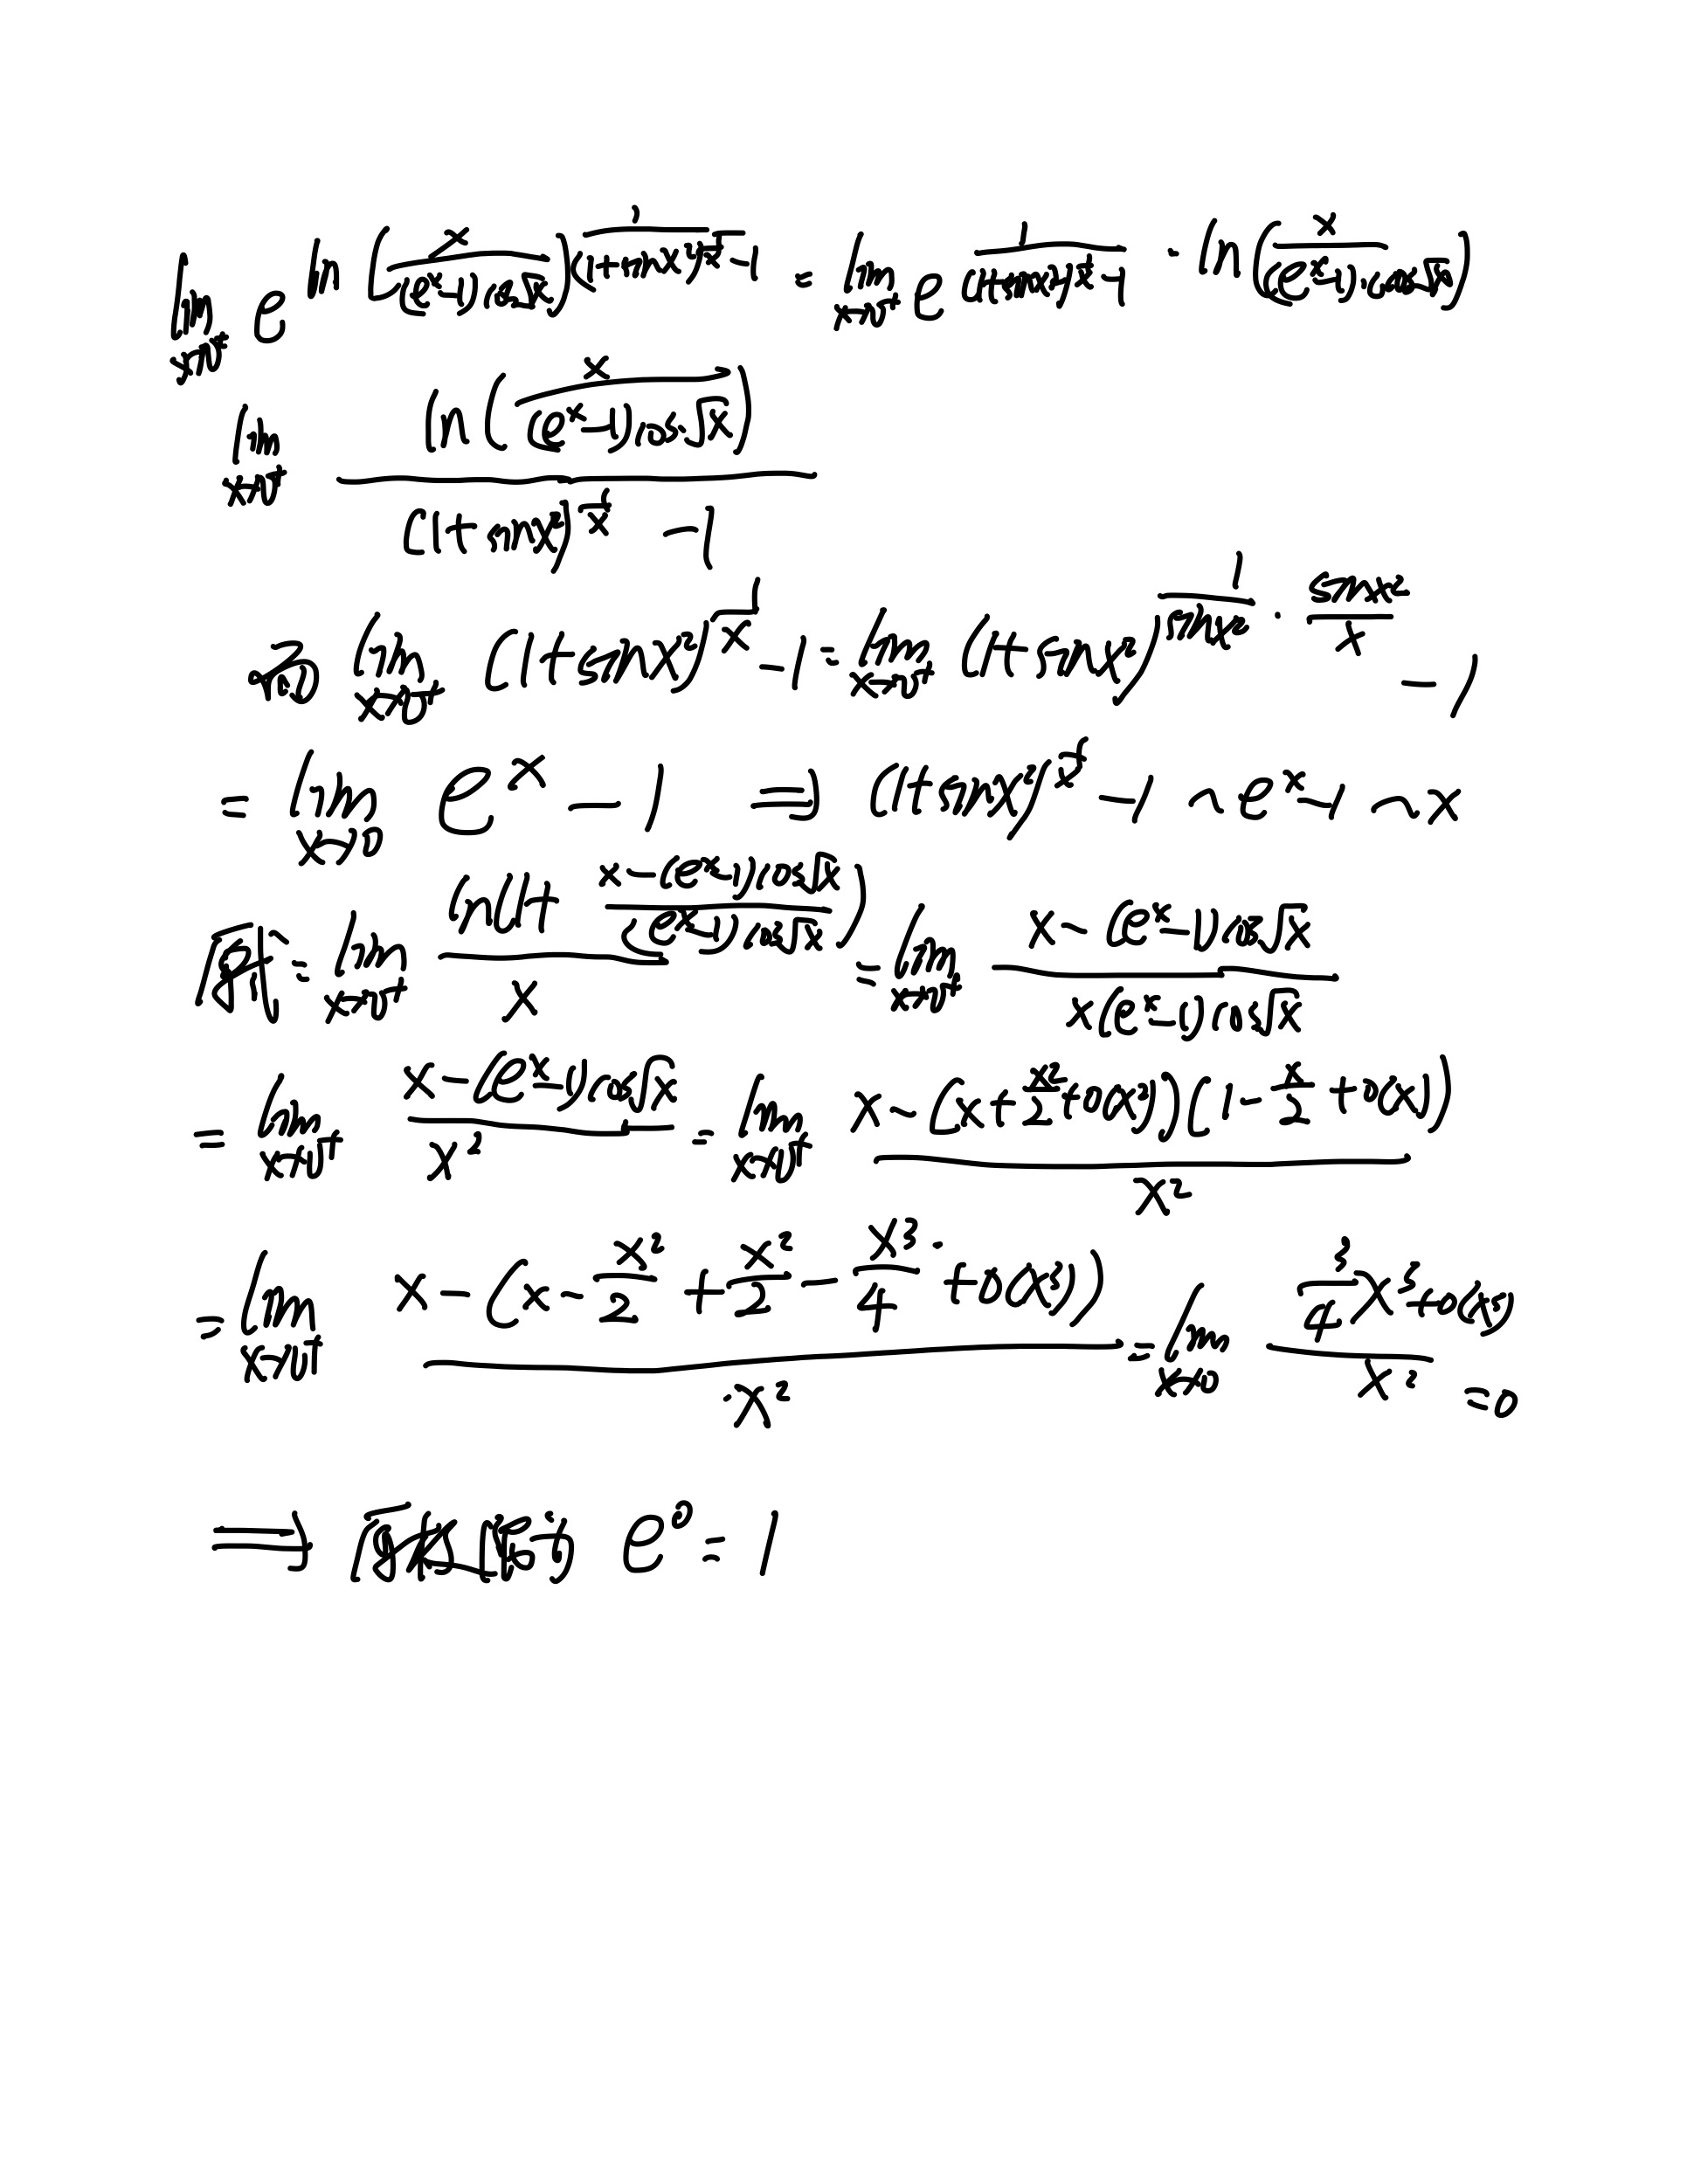 lim x→0⁺ e^{ln (x/((eˣ-1)cos√x))^{1/((1+sinx²)^{1/x}-1)}} = lim x→0⁺ e^{1/((1+sinx²)^{1/x}-1) · ln(x/((eˣ-1)·cos√x))}
lim x→0⁺ ln(x/((eˣ-1)cos√x)) / ((1+sinx²)^{1/x} -1)
而 lim x→0⁺ (1+sinx²)^{1/x} -1 = lim x→0⁺ (1+sinx²)^{1/sinx² · sinx²/x} -1
= lim x→0 eˣ -1 ⇒ (1+sinx²)^{1/x} -1 ~ eˣ-1 ~ x
原式 = lim x→0⁺ ln(1+ (x-(eˣ-1)cos√x)/((eˣ-1)cos√x)) / x = lim x→0⁺ (x-(eˣ-1)cos√x) / (x(eˣ-1)cos√x)
= lim x→0⁺ (x-(eˣ-1)cos√x) / x² = lim x→0⁺ (x-(x+x²/2+o(x²))(1-x/2+o(x))) / x²
= lim x→0⁺ (x-(x-x²/2+x²/2-x³/4+o(x³))) / x² = lim x→0 (3/4 x³+o(x³)) / x² =0
⇒ 原极限为 e⁰=1